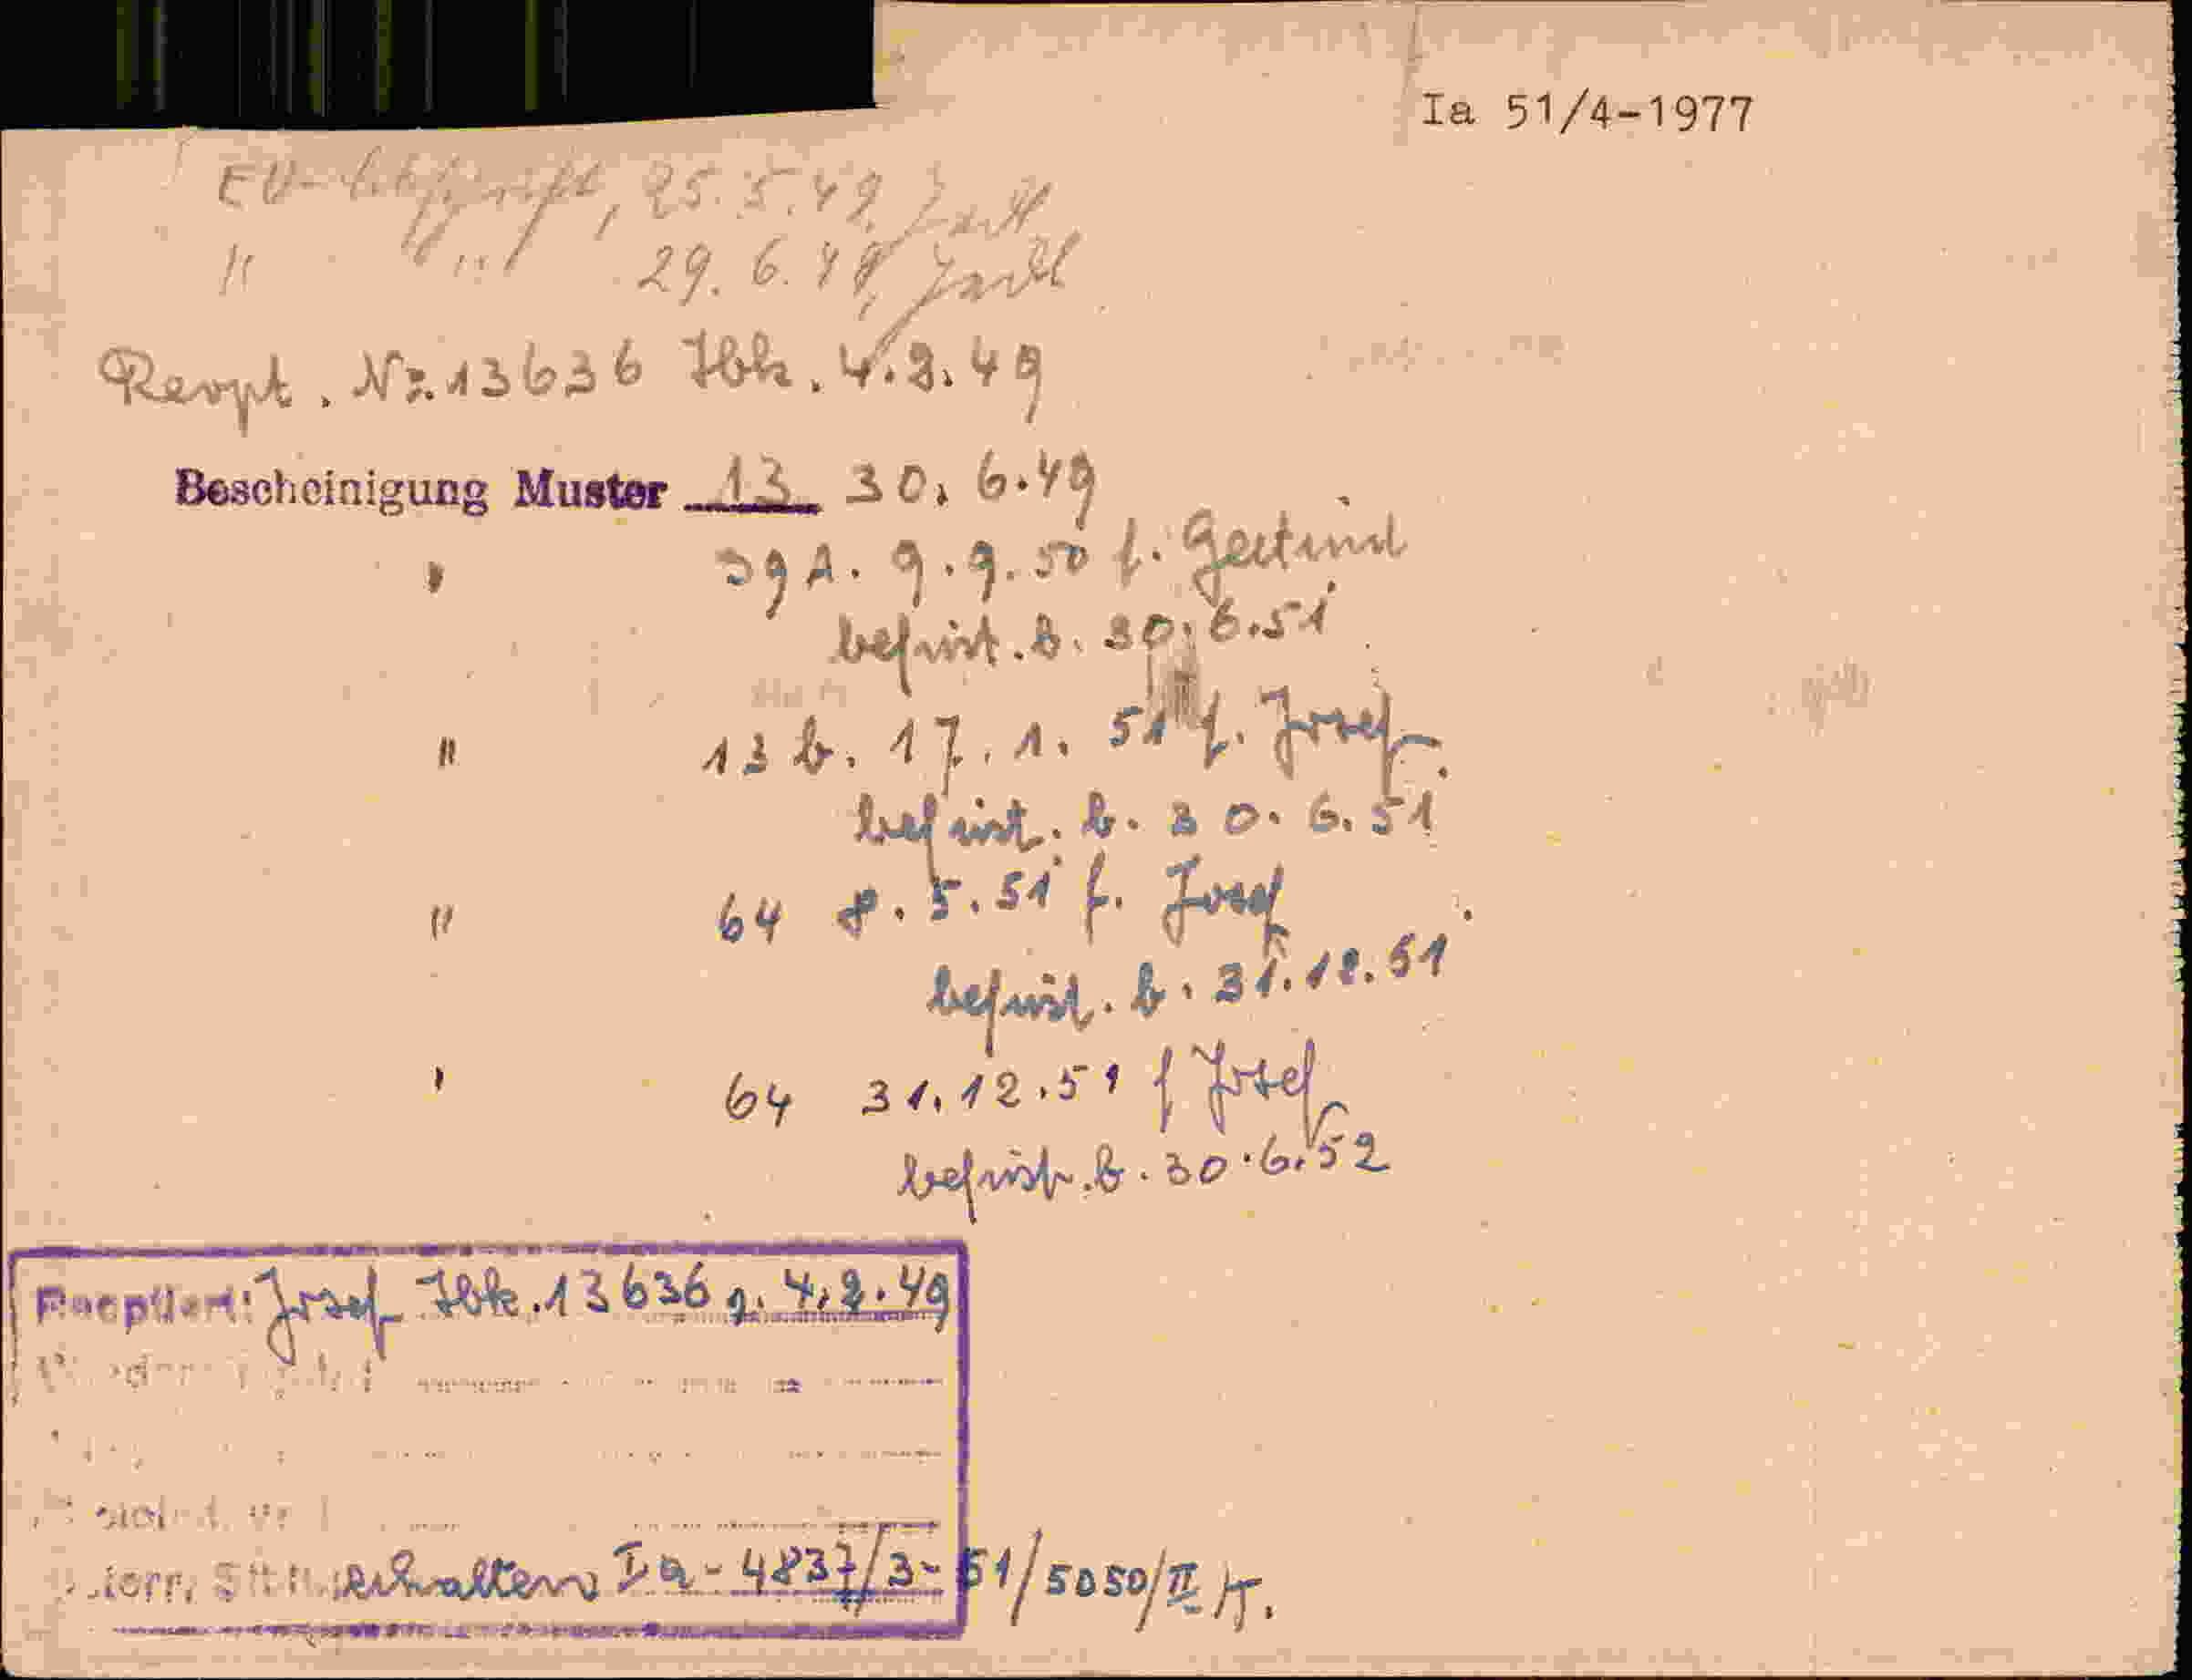 Ia 51/4-1977
EU- 25.5.49,
" 29.6.49,
Reopt. Nr. 13636 Ibk. 4.2.49
Bescheinigung Muster 13 30.6.49
" 39 A. 9.9.50 f. Gertrud
befrist. b. 30.6.51
" 13 b. 17.1.51 f. Josef.
befrist. b. 30.6.51
" 64 8.5.51 f. Josef
befrist. b. 31.12.51
" 64 31.12.51 f Josef
befrist. b. 30.6.52
Josef Ibk. 13636 4.2.49
erhalten Ia-4837/3-51/5050/II